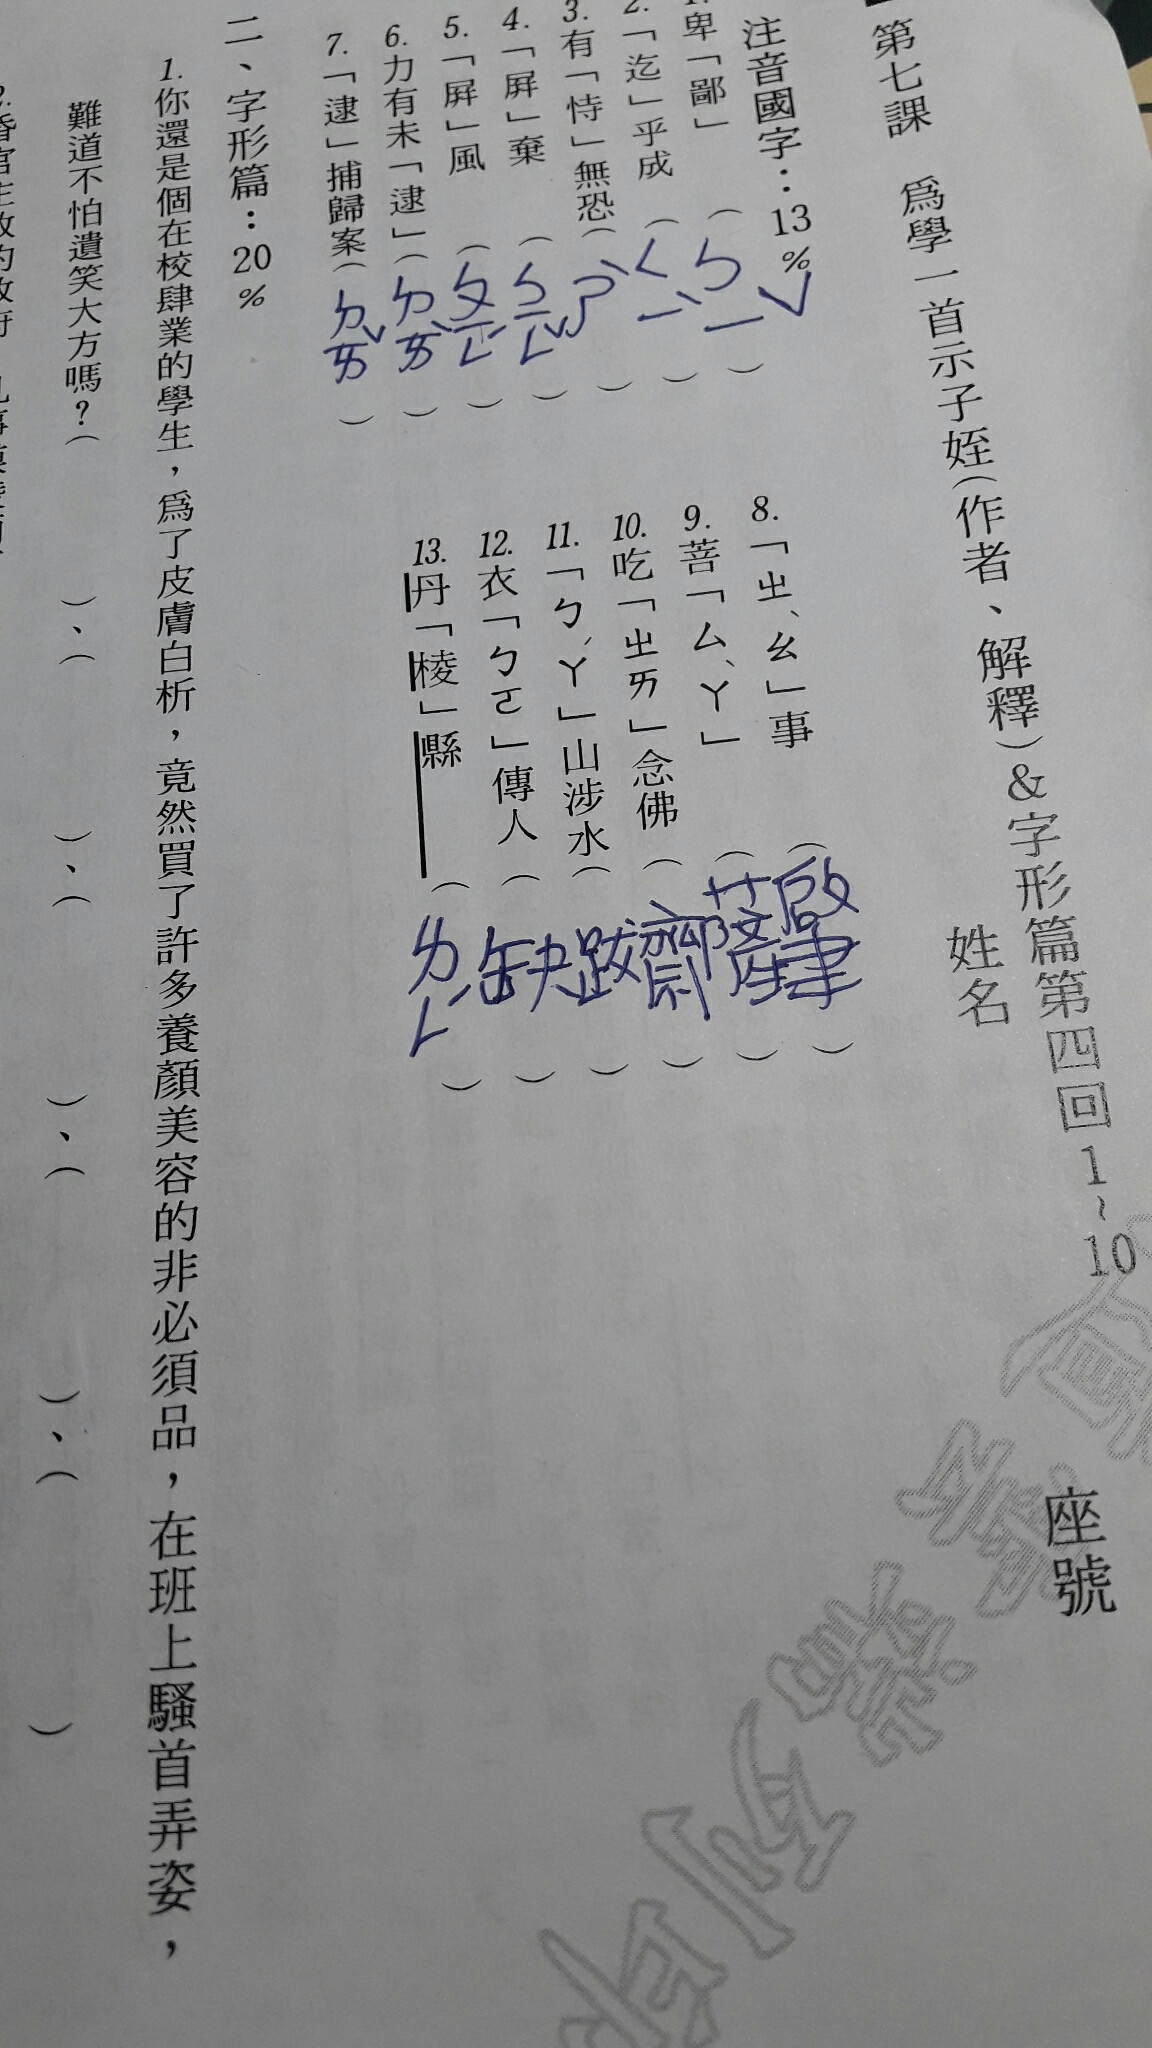 第七課　為學一首示子姪(作者、解釋)&字形篇第四回1~10
姓名
座號
注音國字：13%
卑「鄙」(ㄅㄧˇ)
2.「迄」乎成(ㄑㄧˋ)
3.有「恃」無恐(ㄕˋ)
4.「屏」棄(ㄅㄧㄥˇ)
5.「屏」風(ㄆㄧㄥˊ)
6.力有未「逮」(ㄉㄞˋ)
7.「逮」捕歸案(ㄉㄞˇ)
8.「ㄓㄠˋ」事(肇)
9.菩「ㄙㄚˋ」(薩)
10.吃「ㄓㄞ」念佛(齋)
11.「ㄅㄚˊ」山涉水(跋)
12.衣「ㄅㄛ」傳人(缽)
13.丹「棱」縣(ㄌㄥˊ)
二、字形篇：20%
1.你還是個在校肆業的學生，為了皮膚白析，竟然買了許多養顏美容的非必須品，在班上騷首弄姿，
難道不怕遺笑大方嗎？(　)、(　)、(　)、(　)